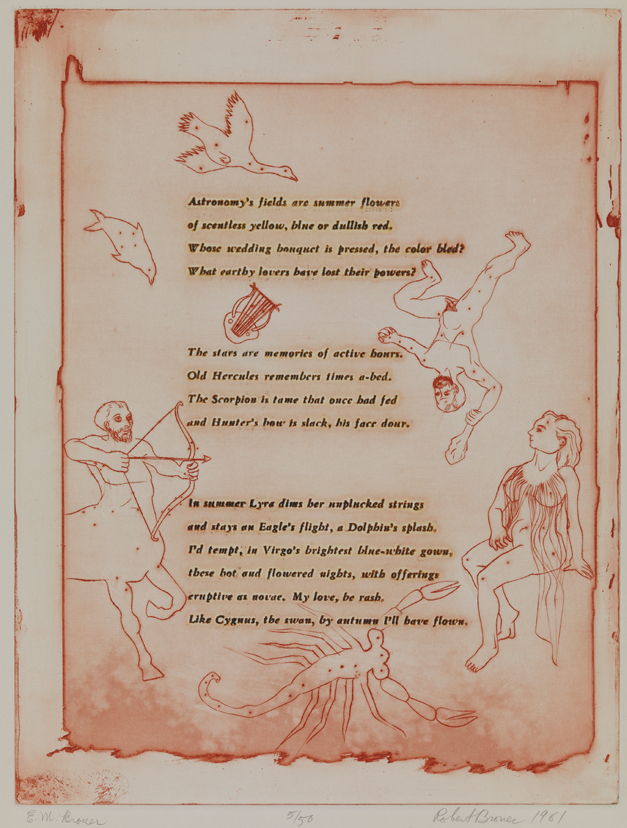 Astronomy's fields are summer flowers
of scentless yellow, blue or dullish red.
Whose wedding bouquet is pressed, the color bled?
What earthy lovers have lost their powers?
The stars are memories of active hours.
Old Hercules remembers times a-bed.
The Scorpion is tame that once had fed
and Hunter's bow is slack, his face dour.
In summer Lyra dims her unplucked strings
and stays an Eagle's flight, a Dolphin's splash.
I'd tempt, in Virgo's brightest blue-white gown,
these hot and flowered nights, with offerings
eruptive as novae. My love, be rash.
Like Cygnus, the swan, by autumn I'll have flown.
E.M. Broner 5/50 Robert Broner 1961